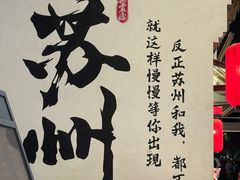 苏州
反正苏州和我，都
就这样慢慢等你出现